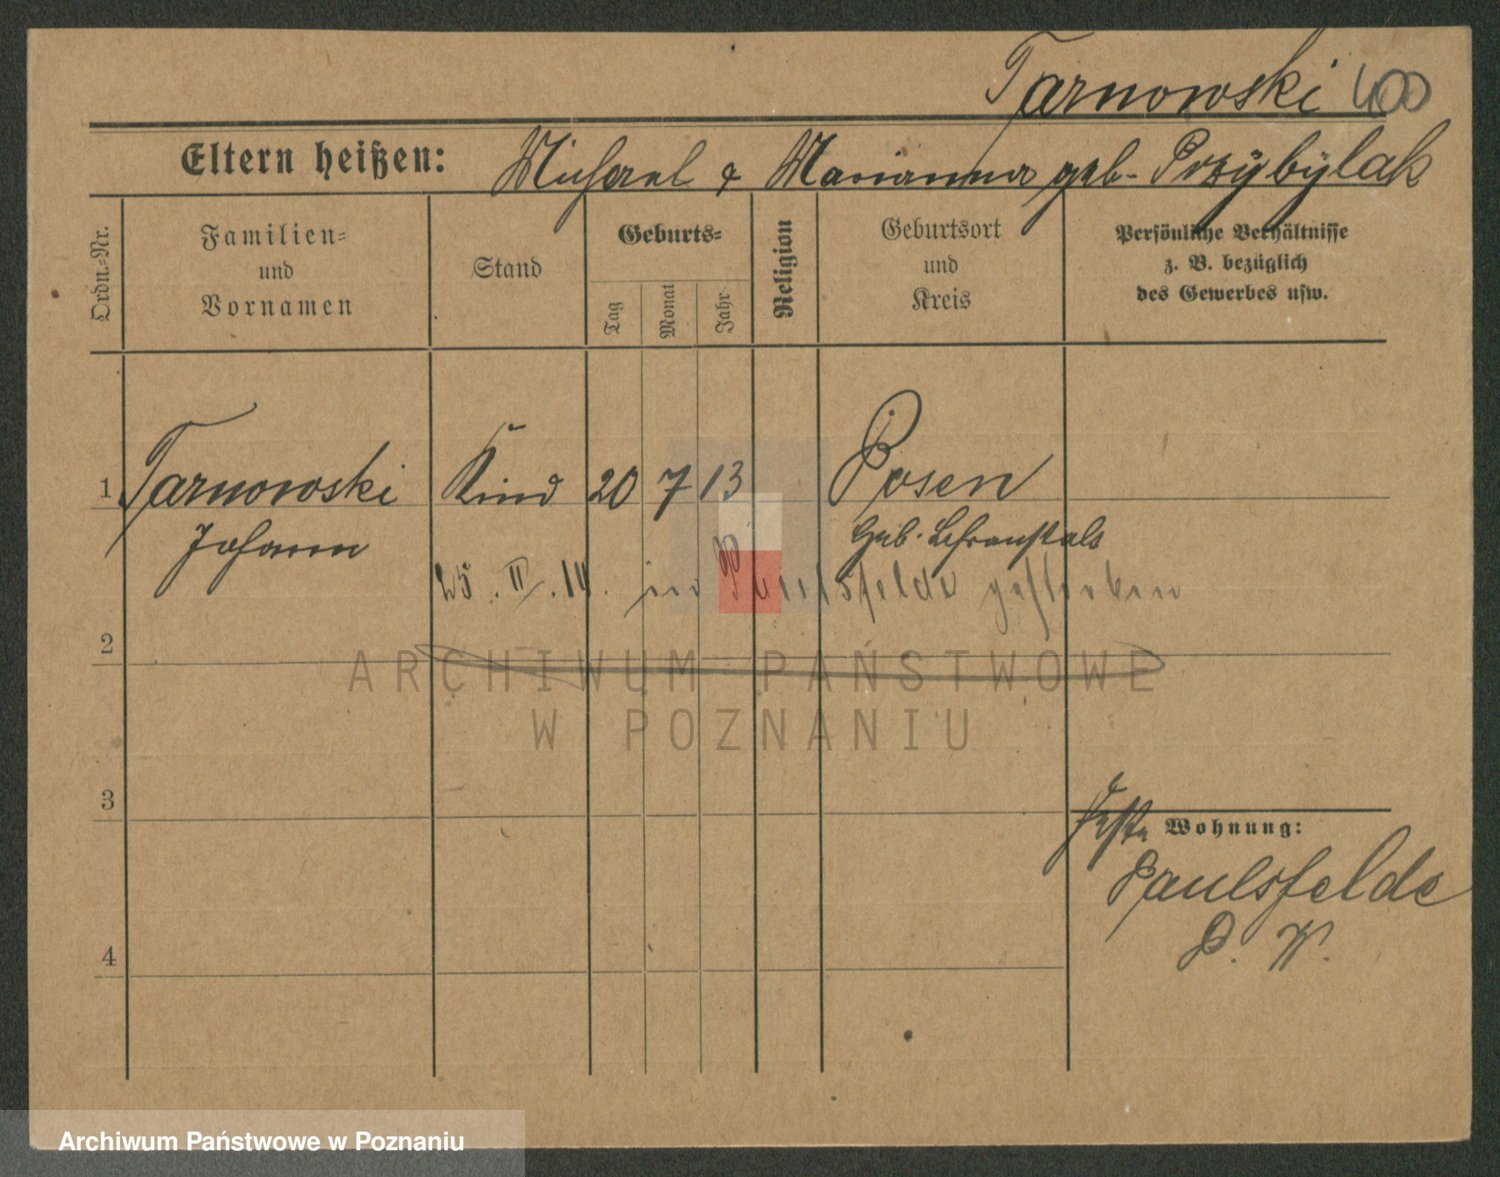 Tarnowski 400
Eltern heißen: Michael & Marianna geb. Przybylak
Ordn.-Nr.
Familien-
und
Vornamen
Stand
Geburts-
Tag
Monat
Jahr
Religion
Geburtsort
und
Kreis
Persönliche Verhältnisse
z. B. bezüglich
des Gewerbes usw.
1 Tarnowski Kind 20 7 13 Posen
Johann Heb. Lehranstalt
25. II. 14. in Paulsfelde gestorben
2
ARCHIWUM PAŃSTWOWE
W POZNANIU
3
feste Wohnung:
Paulsfelde
P. W.
4
Archiwum Państwowe w Poznaniu